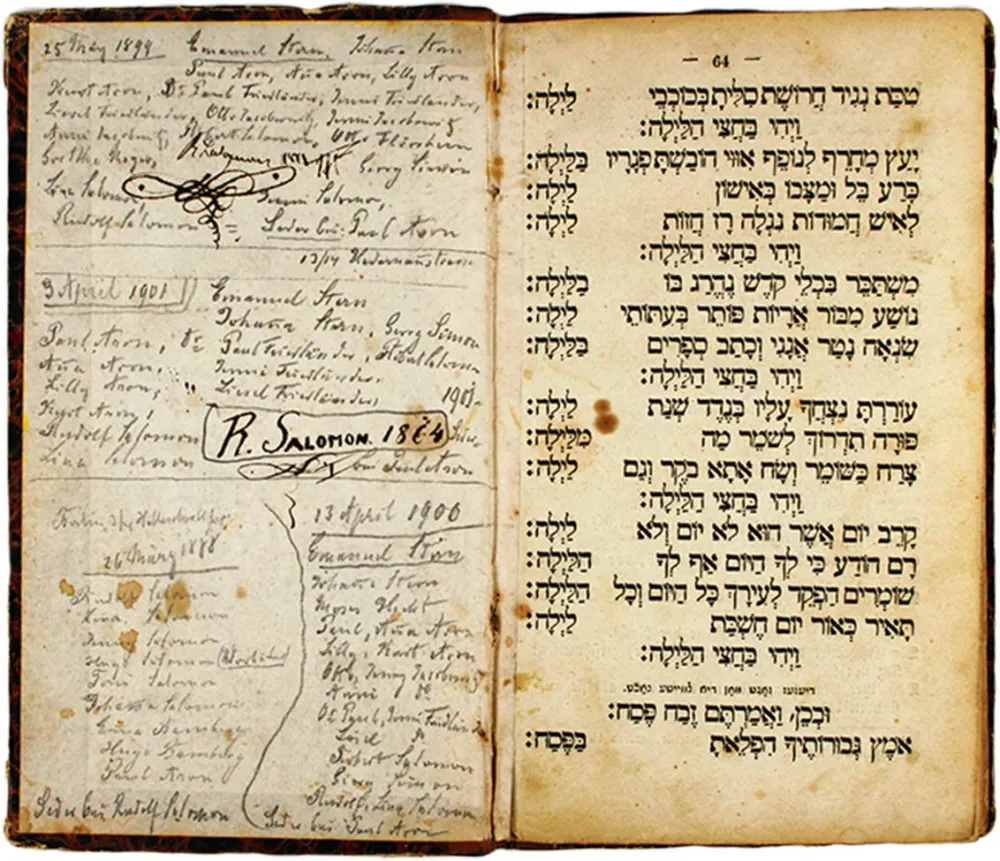 25 May 1894 Emanuel Stern, Johanna Stern
Paul Aron, Anna Aron, Lilly Aron
Kurt Aron, Dr Paul Friedländer, Jenni Friedländer,
Liesel Friedländer, Otto Jacobowitz, Jenni Jacobowitz
Anni Jacobowitz, Salomon, Otto
Georg Simon
Lina Salomon Jenni Salomon,
Rudolf Salomon Seder bei: Paul Aron
13/14
3 April 1901 Emanuel Stern
Johanna Stern, Georg Simon
Paul Aron, Dr Paul Friedländer, Salomon
Anna Aron, Jenni Friedländer,
Lilly Aron, Liesel Friedländer, 1901
Kurt Aron,
Rudolf Salomon R. SALOMON. 1874 Seder
Lina Salomon bei Paul Aron
Berlin
26 März 1888
Rudolf Salomon
Lina Salomon
Jenni Salomon
Hugo Salomon
Toni Salomon
Johanna Salomon
Emma Bamberg
Hugo Bamberg
Paul Aron
Seder bei Rudolf Salomon
13 April 1900
Emanuel Stern
Johanna Stern
Moses
Paul, Anna Aron
Lilly, Kurt Aron
Otto, Jenny Jacobowitz
Anni do
Dr Paul, Jenni Friedländer
Liesel do
Salomon
Georg Simon
Rudolf, Lina Salomon
Seder bei Paul Aron
— 64 —
טַפַּת נְגִיד חֲרוֹשֶׁת סִלִּיתָ בְּכוֹכְבֵי לַיְלָה:
וַיְהִי בַּחֲצִי הַלַּיְלָה:
יָעַץ מְחָרֵף לְנוֹפֵף אִוּוּי הוֹבַשְׁתָּ פְגָרָיו בַּלַּיְלָה:
כָּרַע בֵּל וּמַצָּבוֹ בְּאִישׁוֹן לַיְלָה:
לְאִישׁ חֲמוּדוֹת נִגְלָה רָז חֲזוֹת לַיְלָה:
וַיְהִי בַּחֲצִי הַלַּיְלָה:
מִשְׁתַּכֵּר בִּכְלֵי קֹדֶשׁ נֶהֱרַג בּוֹ בַלַּיְלָה:
נוֹשַׁע מִבּוֹר אֲרָיוֹת פּוֹתֵר בִּעֲתוּתֵי לַיְלָה:
שִׂנְאָה נָטַר אֲגָגִי וְכָתַב סְפָרִים בַּלַּיְלָה:
וַיְהִי בַּחֲצִי הַלַּיְלָה:
עוֹרַרְתָּ נִצְחֲךָ עָלָיו בְּנֶדֶד שְׁנַת לַיְלָה:
פּוּרָה תִדְרוֹךְ לְשֹׁמֵר מַה מִּלַּיְלָה:
צָרַח כַּשּׁוֹמֵר וְשָׂח אָתָא בֹקֶר וְגַם לַיְלָה:
וַיְהִי בַּחֲצִי הַלַּיְלָה:
קָרֵב יוֹם אֲשֶׁר הוּא לֹא יוֹם וְלֹא לַיְלָה:
רָם הוֹדַע כִּי לְךָ הַיּוֹם אַף לְךָ הַלַּיְלָה:
שׁוֹמְרִים הַפְקֵד לְעִירְךָ כָּל הַיּוֹם וְכָל הַלַּיְלָה:
תָּאִיר כְּאוֹר יוֹם חֶשְׁכַת לַיְלָה:
וַיְהִי בַּחֲצִי הַלַּיְלָה:
דיעזעס זאגט מאן דיא צווייטע נאכט.
וּבְכֵן, וַאֲמַרְתֶּם זֶבַח פֶּסַח:
אֹמֶץ גְּבוּרוֹתֶיךָ הִפְלֵאתָ בַּפֶּסַח: